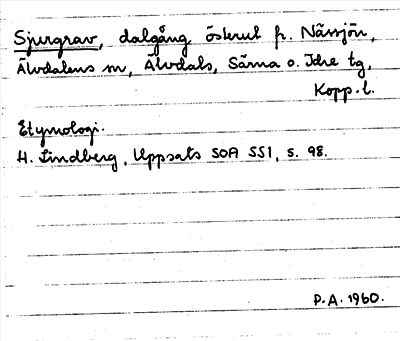 Sjurgrav, dalgång österut fr. Nässjön,
Älvdalens sn, Älvdals, Särna o. Idre tg,
Kopp. l.
Etymologi.
H. Lindberg, Uppsats SOA 551, s. 98.
P.A. 1960.